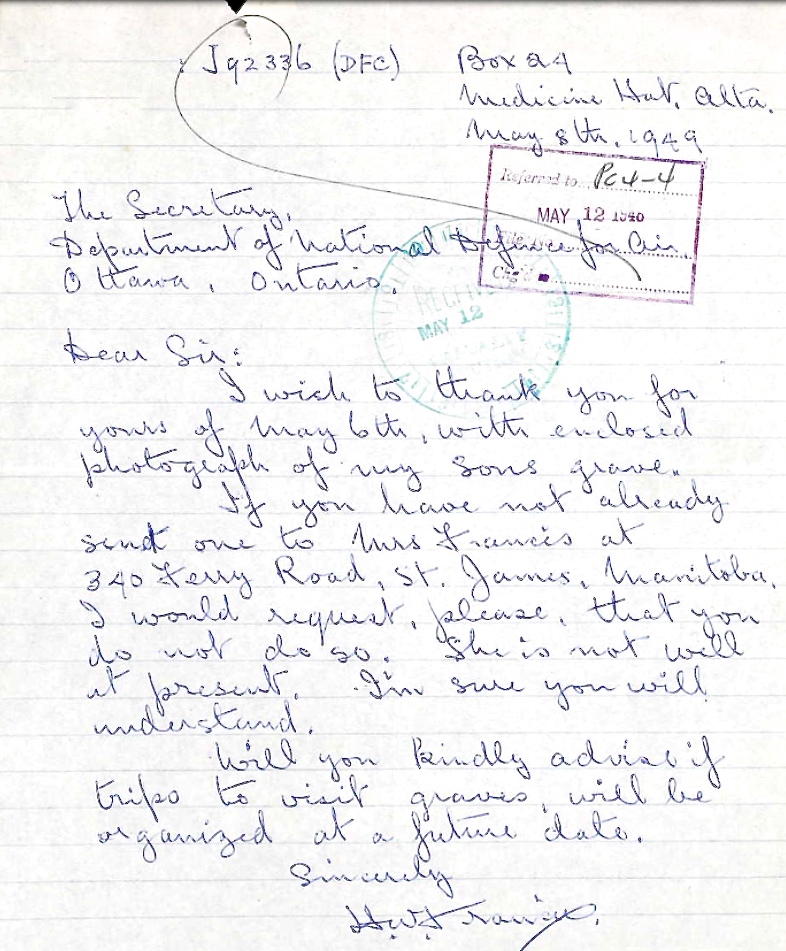 J92336 (DFC)
Box 24
Medicine Hat. Alta.
May 8th, 1949
Referred to PC4-4
MAY 12 1940
File
Chg'd
The Secretary,
Department of National Defense for Air.
Ottawa, Ontario.
MAY 12
Dear Sir:
I wish to thank you for
yours of May 6th, with enclosed
photograph of my sons grave.
If you have not already
send one to Mrs Francis at
340 Ferry Road, St. James, Manitoba.
I would request, please, that you
do not do so. She is not well
at present. I'm sure you will
understand.
Will you kindly advise if
trips to visit graves, will be
organized at a future date.
Sincerely
H.W. Francis.